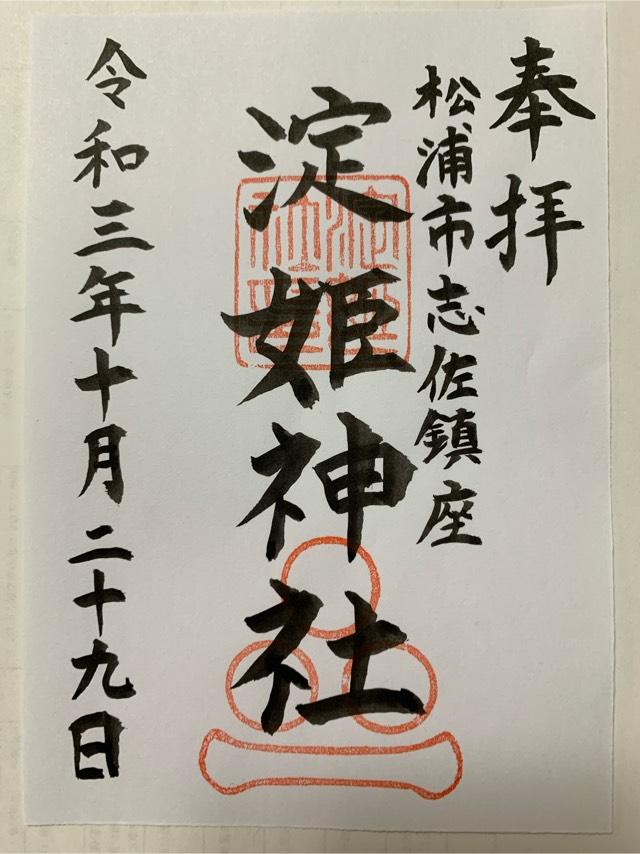 奉拝
松浦市志佐鎮座
淀姫神社
令和三年十月二十九日